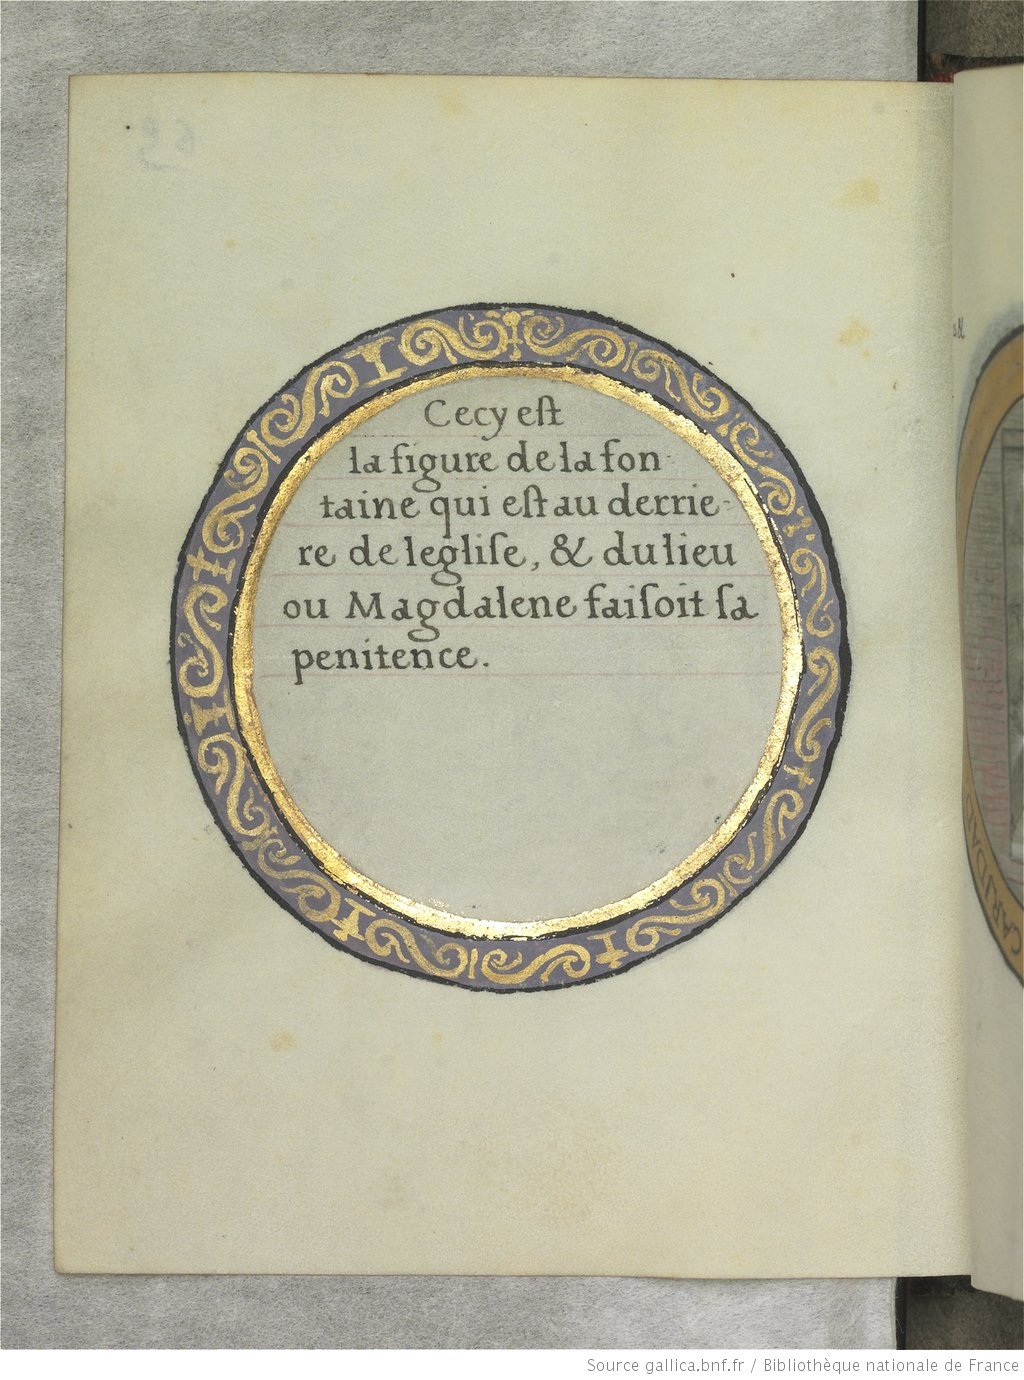 Cecy est
la figure de la fon-
taine qui est au derrie-
re de leglise, & du lieu
ou Magdalene faisoit sa
penitence.
CARITDAT
Source gallica.bnf.fr / Bibliothèque nationale de France